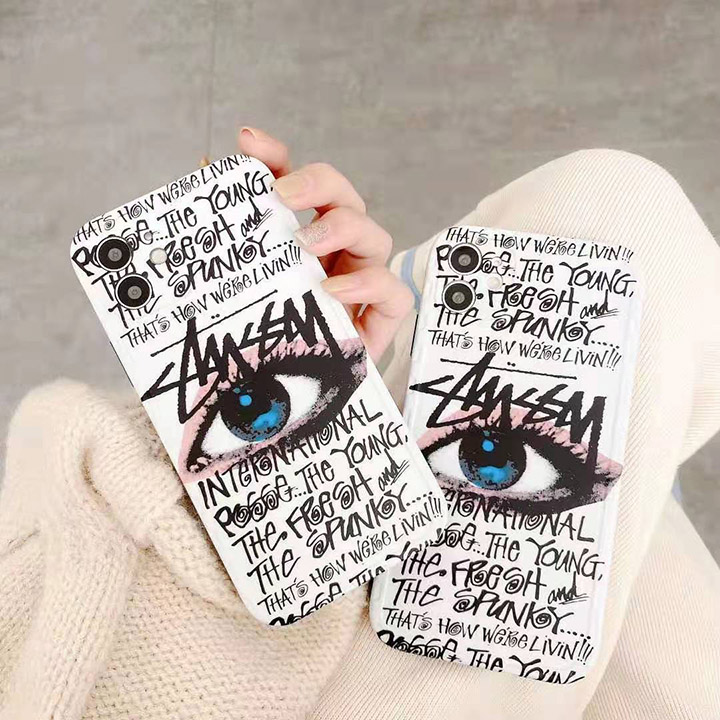 THAT'S HOW WE'RE LIVIN!!!
POSSE...THE YOUNG,
THE FRESH and
THE SPUNKY.....
THAT'S HOW WE'RE LIVIN!!!
STÜSSY
INTERNATIONAL
POSSE...THE YOUNG,
THE FRESH and
THE SPUNKY.....
THAT'S HOW WE'RE LIVIN!!!
POSSE...THE YOUNG
THAT'S HOW WE'RE LIVIN!!!
POSSE...THE YOUNG,
THE FRESH and
THE SPUNKY.....
THAT'S HOW WE'RE LIVIN!!!
STÜSSY
INTERNATIONAL
POSSE...THE YOUNG,
THE FRESH and
THE SPUNKY.....
THAT'S HOW WE'RE LIVIN!!!
POSSE...THE YOUNG